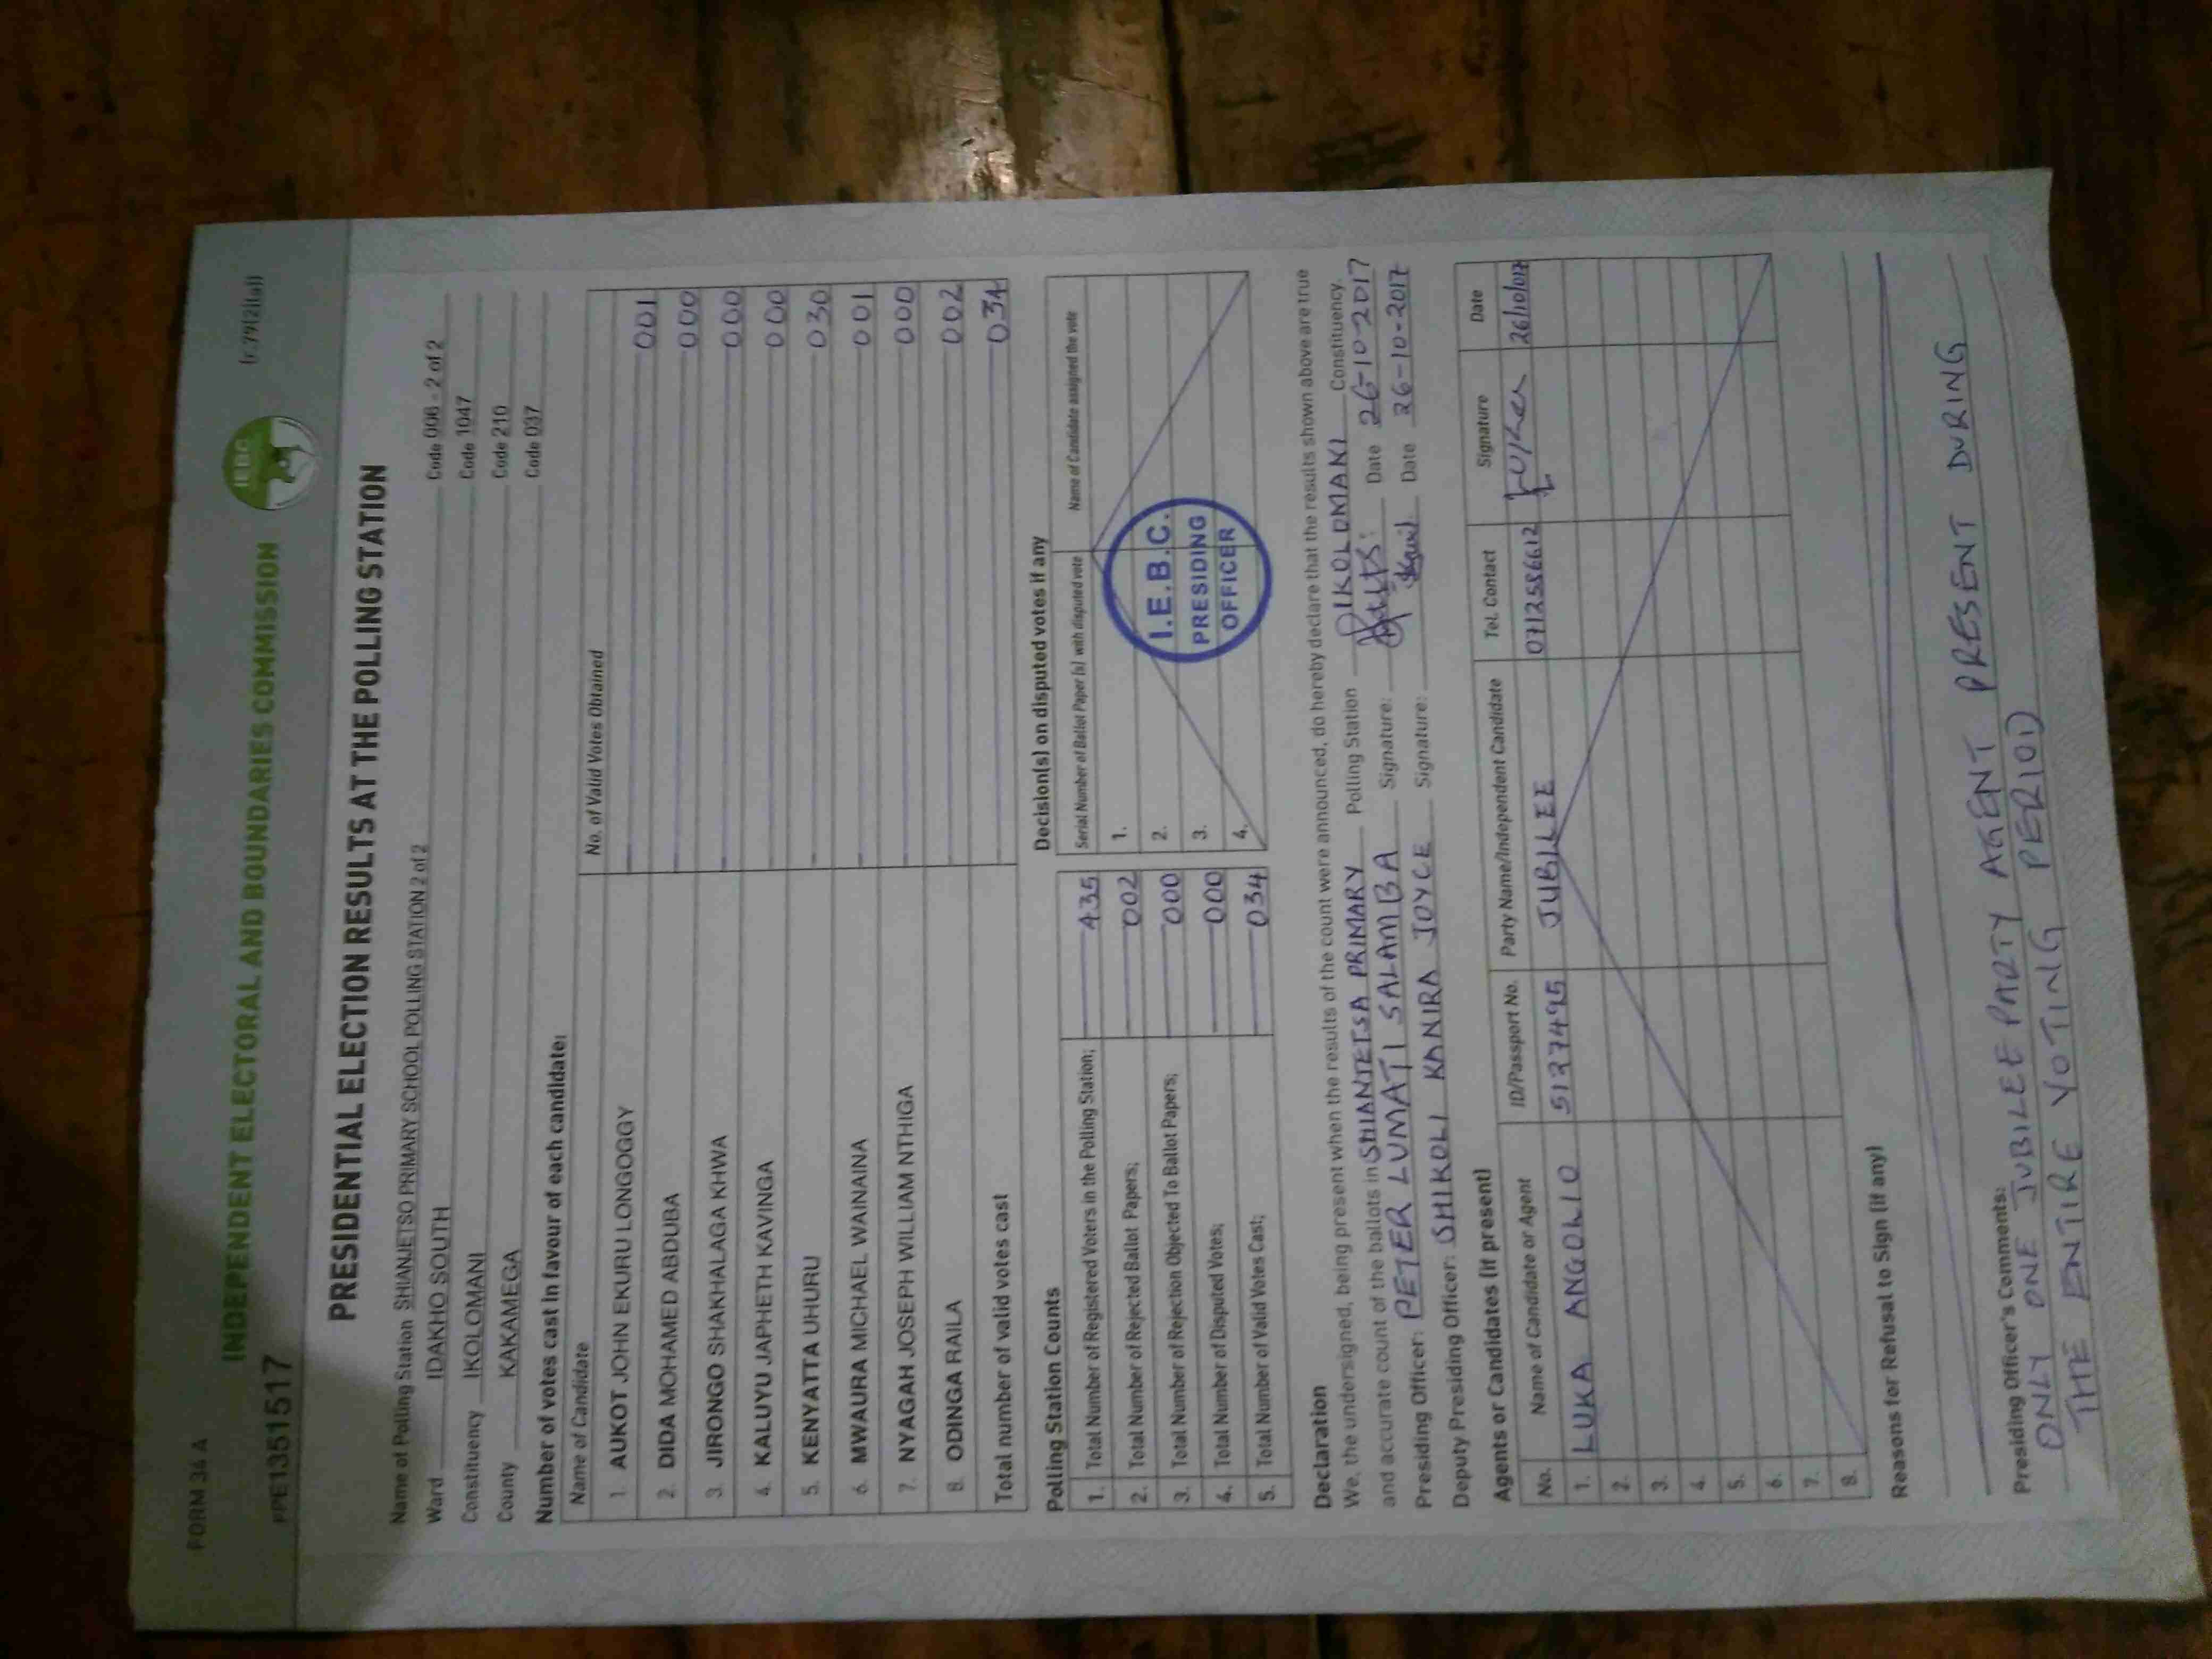 FORM 34 A
(r.79(2)(a))
INDEPENDENT ELECTORAL AND BOUNDARIES COMMISSION
IEBC
PPE1351517
PRESIDENTIAL ELECTION RESULTS AT THE POLLING STATION
Name of Polling Station SHIANJETSO PRIMARY SCHOOL POLLING STATION 2 of 2 Code 006 - 2 of 2
Ward IDAKHO SOUTH Code 1047
Constituency IKOLOMANI Code 210
County KAKAMEGA Code 037
Number of votes cast in favour of each candidate:
Name of Candidate No. of Valid Votes Obtained
1. AUKOT JOHN EKURU LONGOGGY 001
2. DIDA MOHAMED ABDUBA 000
3. JIRONGO SHAKHALAGA KHWA 000
4. KALUYU JAPHETH KAVINGA 000
5. KENYATTA UHURU 030
6. MWAURA MICHAEL WAINAINA 001
7. NYAGAH JOSEPH WILLIAM NTHIGA 000
8. ODINGA RAILA 002
Total number of valid votes cast 034
Polling Station Counts
1. Total Number of Registered Voters in the Polling Station; 435
2. Total Number of Rejected Ballot Papers; 002
3. Total Number of Rejection Objected To Ballot Papers; 000
4. Total Number of Disputed Votes; 000
5. Total Number of Valid Votes Cast; 034
Decision(s) on disputed votes if any
Serial Number of Ballot Paper (s) with disputed vote Name of Candidate assigned the vote
1.
2.
3.
4.
I.E.B.C.
PRESIDING
OFFICER
Declaration
We, the undersigned, being present when the results of the count were announced, do hereby declare that the results shown above are true
and accurate count of the ballots in SHIANJETSA PRIMARY Polling Station IKOLOMANI Constituency.
Presiding Officer: PETER LUMATI SALAMBA Signature: Date 26-10-2017
Deputy Presiding Officer: SHIKOLI KANIRA JOYCE Signature: Date 26-10-2017
Agents or Candidates (if present)
No. Name of Candidate or Agent ID/Passport No. Party Name/Independent Candidate Tel. Contact Signature Date
1. LUKA ANGOLIO 5127495 JUBILEE 0712556612 26/10/017
2.
3.
4.
5.
6.
7.
8.
Reasons for Refusal to Sign (if any)
Presiding Officer's Comments:
ONLY ONE JUBILEE PARTY AGENT PRESENT DURING
THE ENTIRE VOTING PERIOD